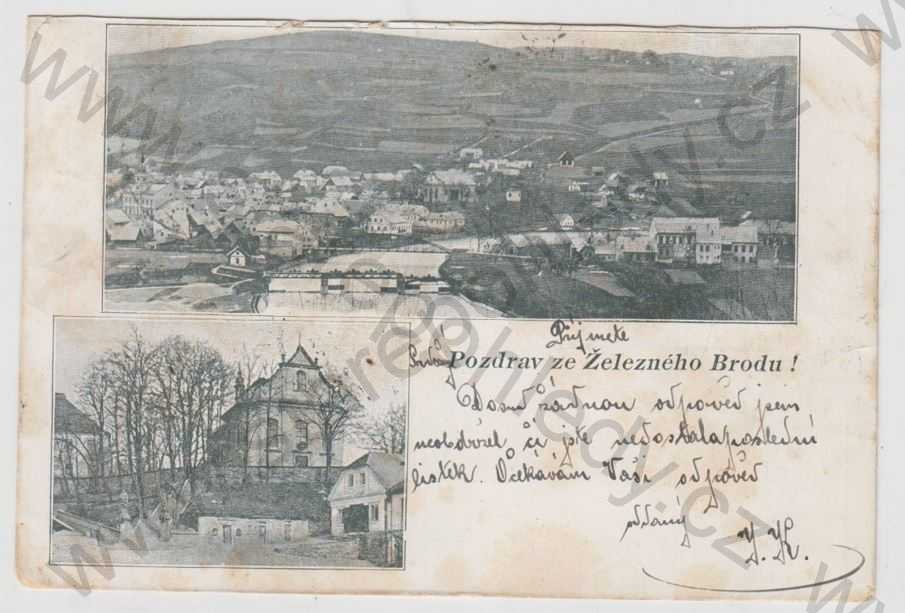 Přijmete
Pozdrav ze Železného Brodu !
Dosud žádnou odpověď jsem
neobdržel či jste nedostala poslední
lístek. Očekávám Vaši odpověď
oddaný
J. K.
www.pohledy.cz